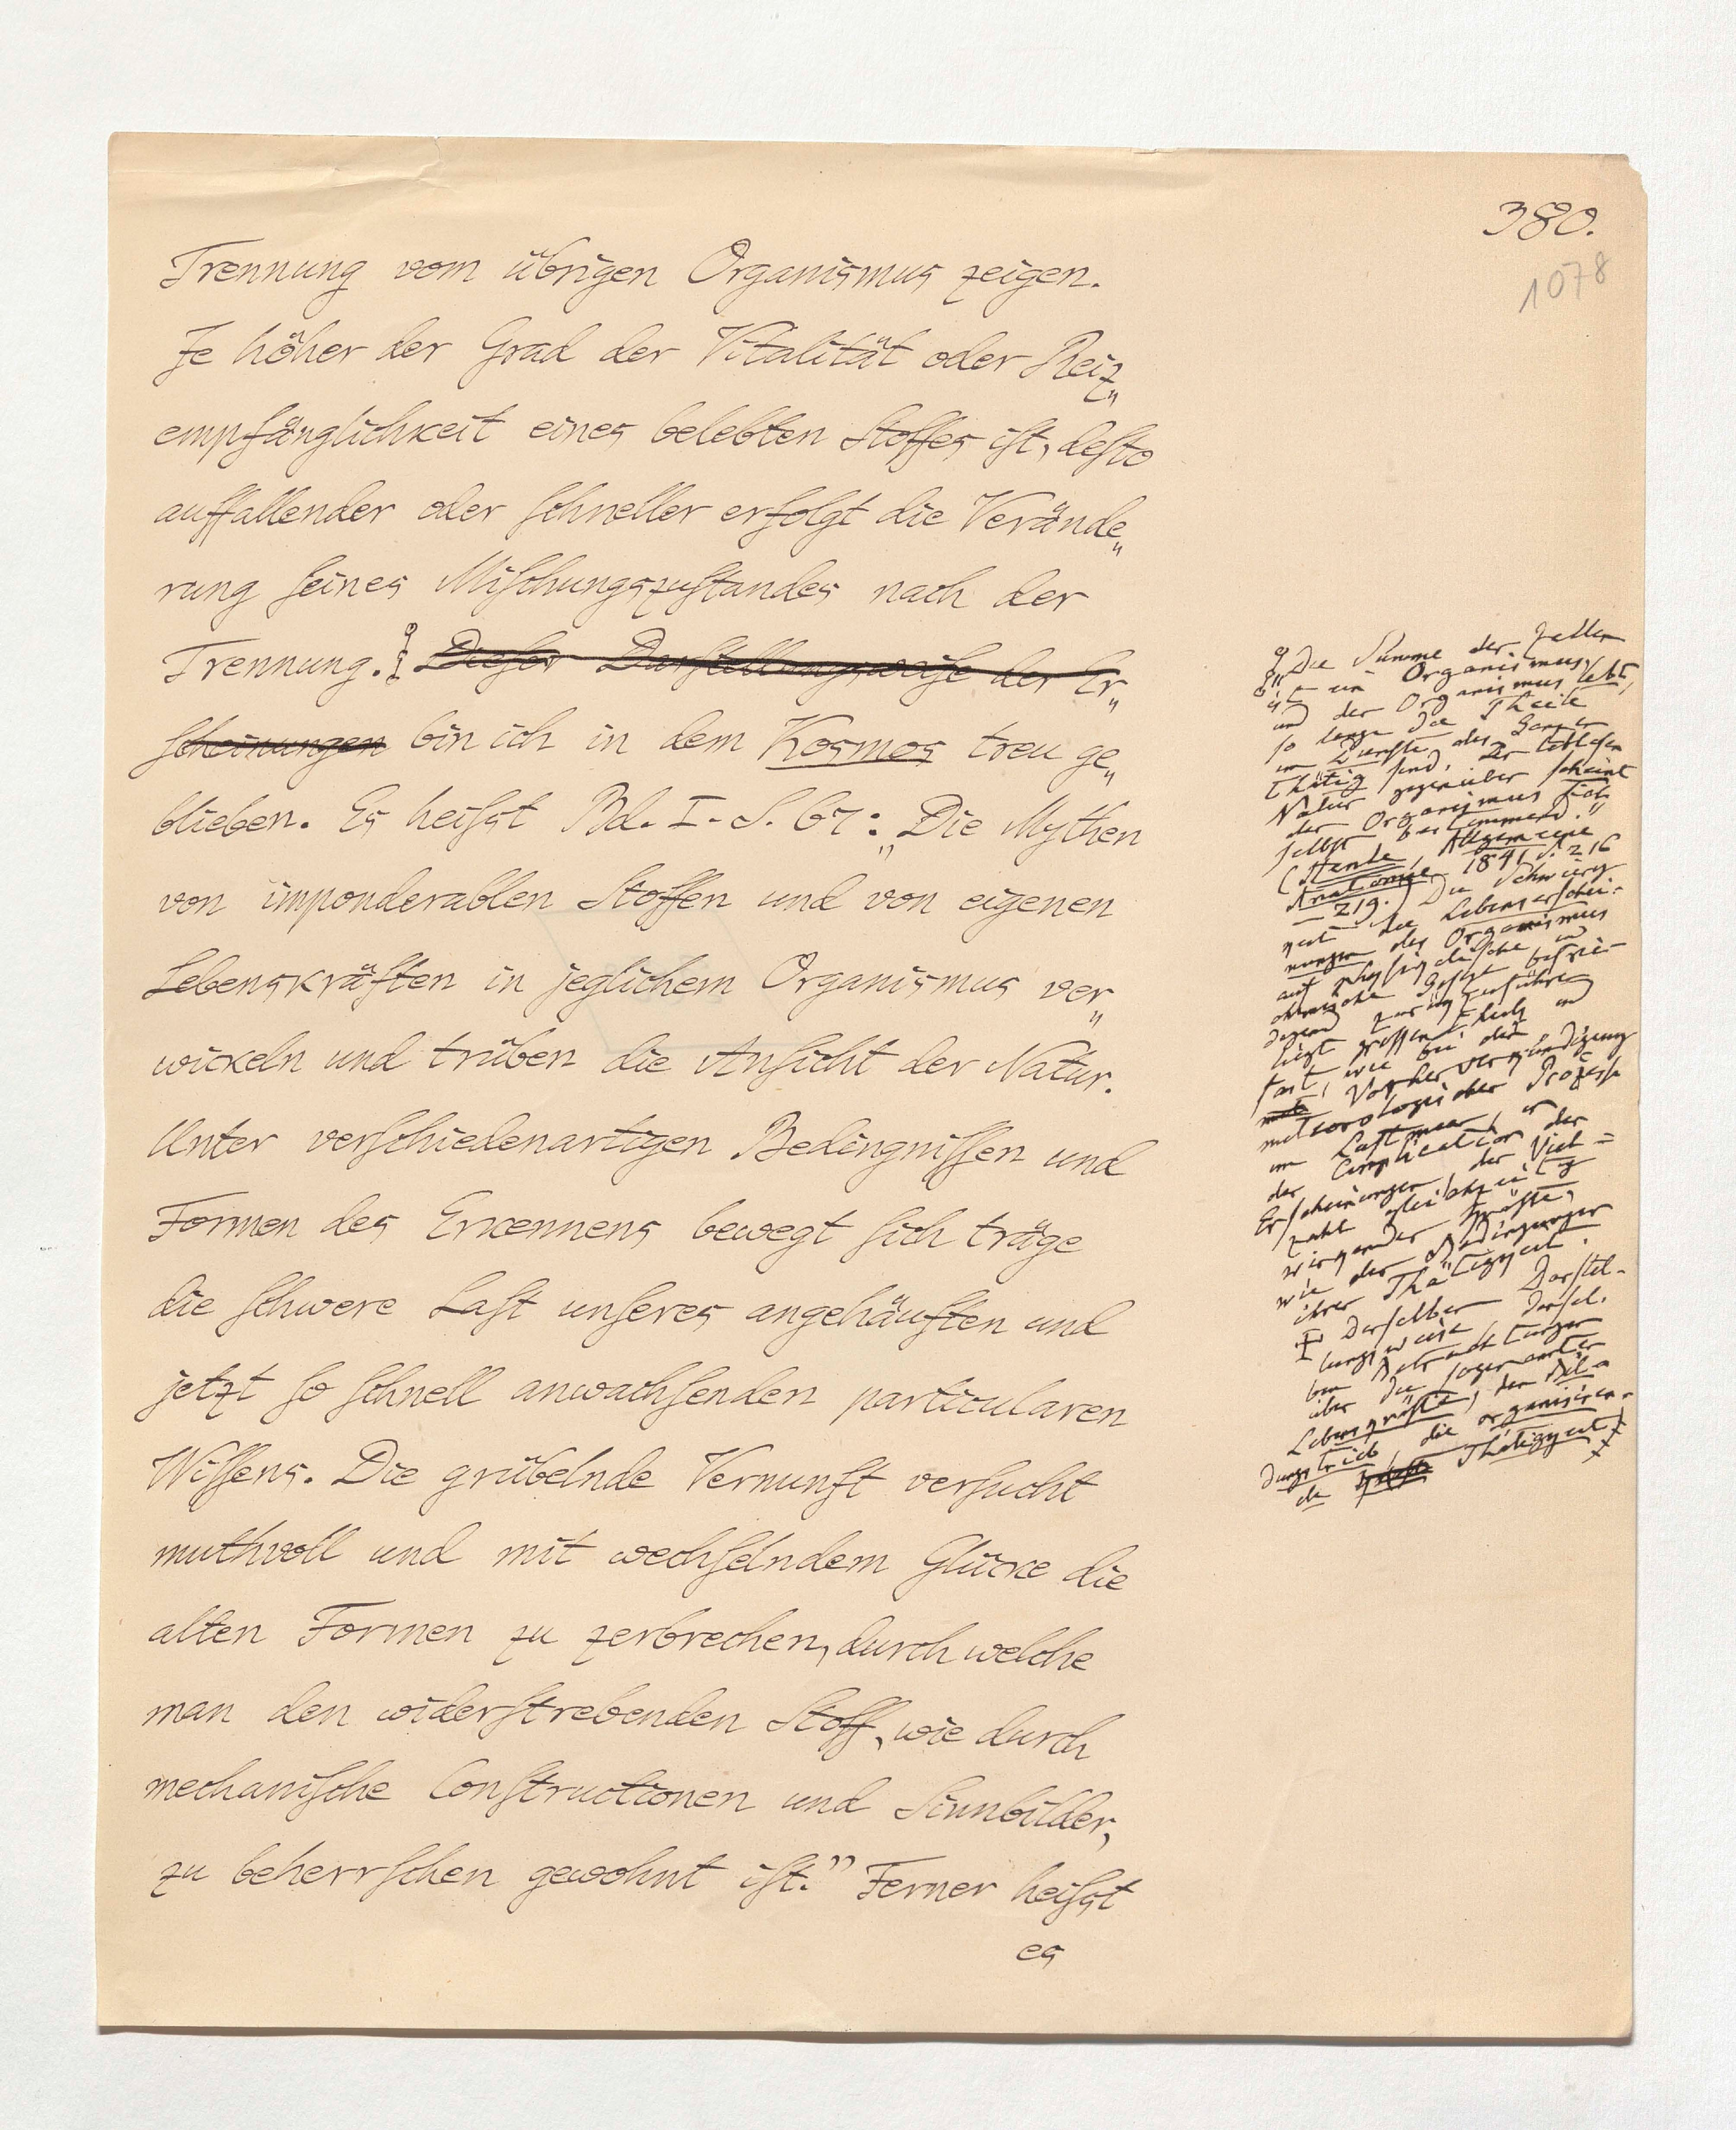 380.
1078
Trennung vom übrigen Organismus zeigen.
Je höher der Grad der Vitalität oder Reiz„
empfänglichkeit eines belebten Stoffes ist, desto
auffallender oder schneller erfolgt die Verände„
rung seines Mischungszustandes nach der
Trennung. Dieser Darstellungsweise der Er„
scheinungen bin ich in dem Kosmos treu ge„
blieben. Es heisst Bd. I. S. 67: „Die Mythen
von imponderablen Stoffen und von eigenen
Lebenskräften in jeglichem Organismus ver„
wickeln und trüben die Ansicht der Natur.
Unter verschiedenartigen Bedingnissen und
Formen des Erkennens bewegt sich träge
die schwere Last unseres angehäuften und
jetzt so schnell anwachsenden particularen
Wissens. Die grübelnde Vernunft versucht
muthvoll und mit wechselndem Glücke die
alten Formen zu zerbrechen, durch welche
man den widerstrebenden Stoff, wie durch
mechanische Constructionen und Sinnbilder,
zu beherrschen gewohnt ist.” Ferner heisst
es
„Die Summe der Zellen
ist ein Organismus,
und der Organismus lebt,
so lange die Theile
im Dienste des Ganzen
thätig sind. Der leblosen
Natur gegenüber scheint
der Organismus sich
selbst bestimmend.”
(Henle, Allgemeine
Anatomie 1841 S. 216
– 219.) Die Schwierig
keit die Lebenserschei-
nungen des Organismus
auf physikalische und
chemische Gesetze befrie-
digend zurükzuführen
liegt grossentheils, und
fast, wie bei der
Vorherverkündigung
meteorologischer Prozesse
im Luftmeer, in
der Complication der
Erscheinungen, der Viel=
zahl gleichzeitig
wirkender Kräfte,
wie der Bedingungen
ihrer Thätigkeit.
Derselben Darstel-
lungsweise, densel-
ben Betrachtungen
über die sogenannten
Lebenskräfte, den Bil-
dungstrieb, die organisiren-
de Thätigkeit